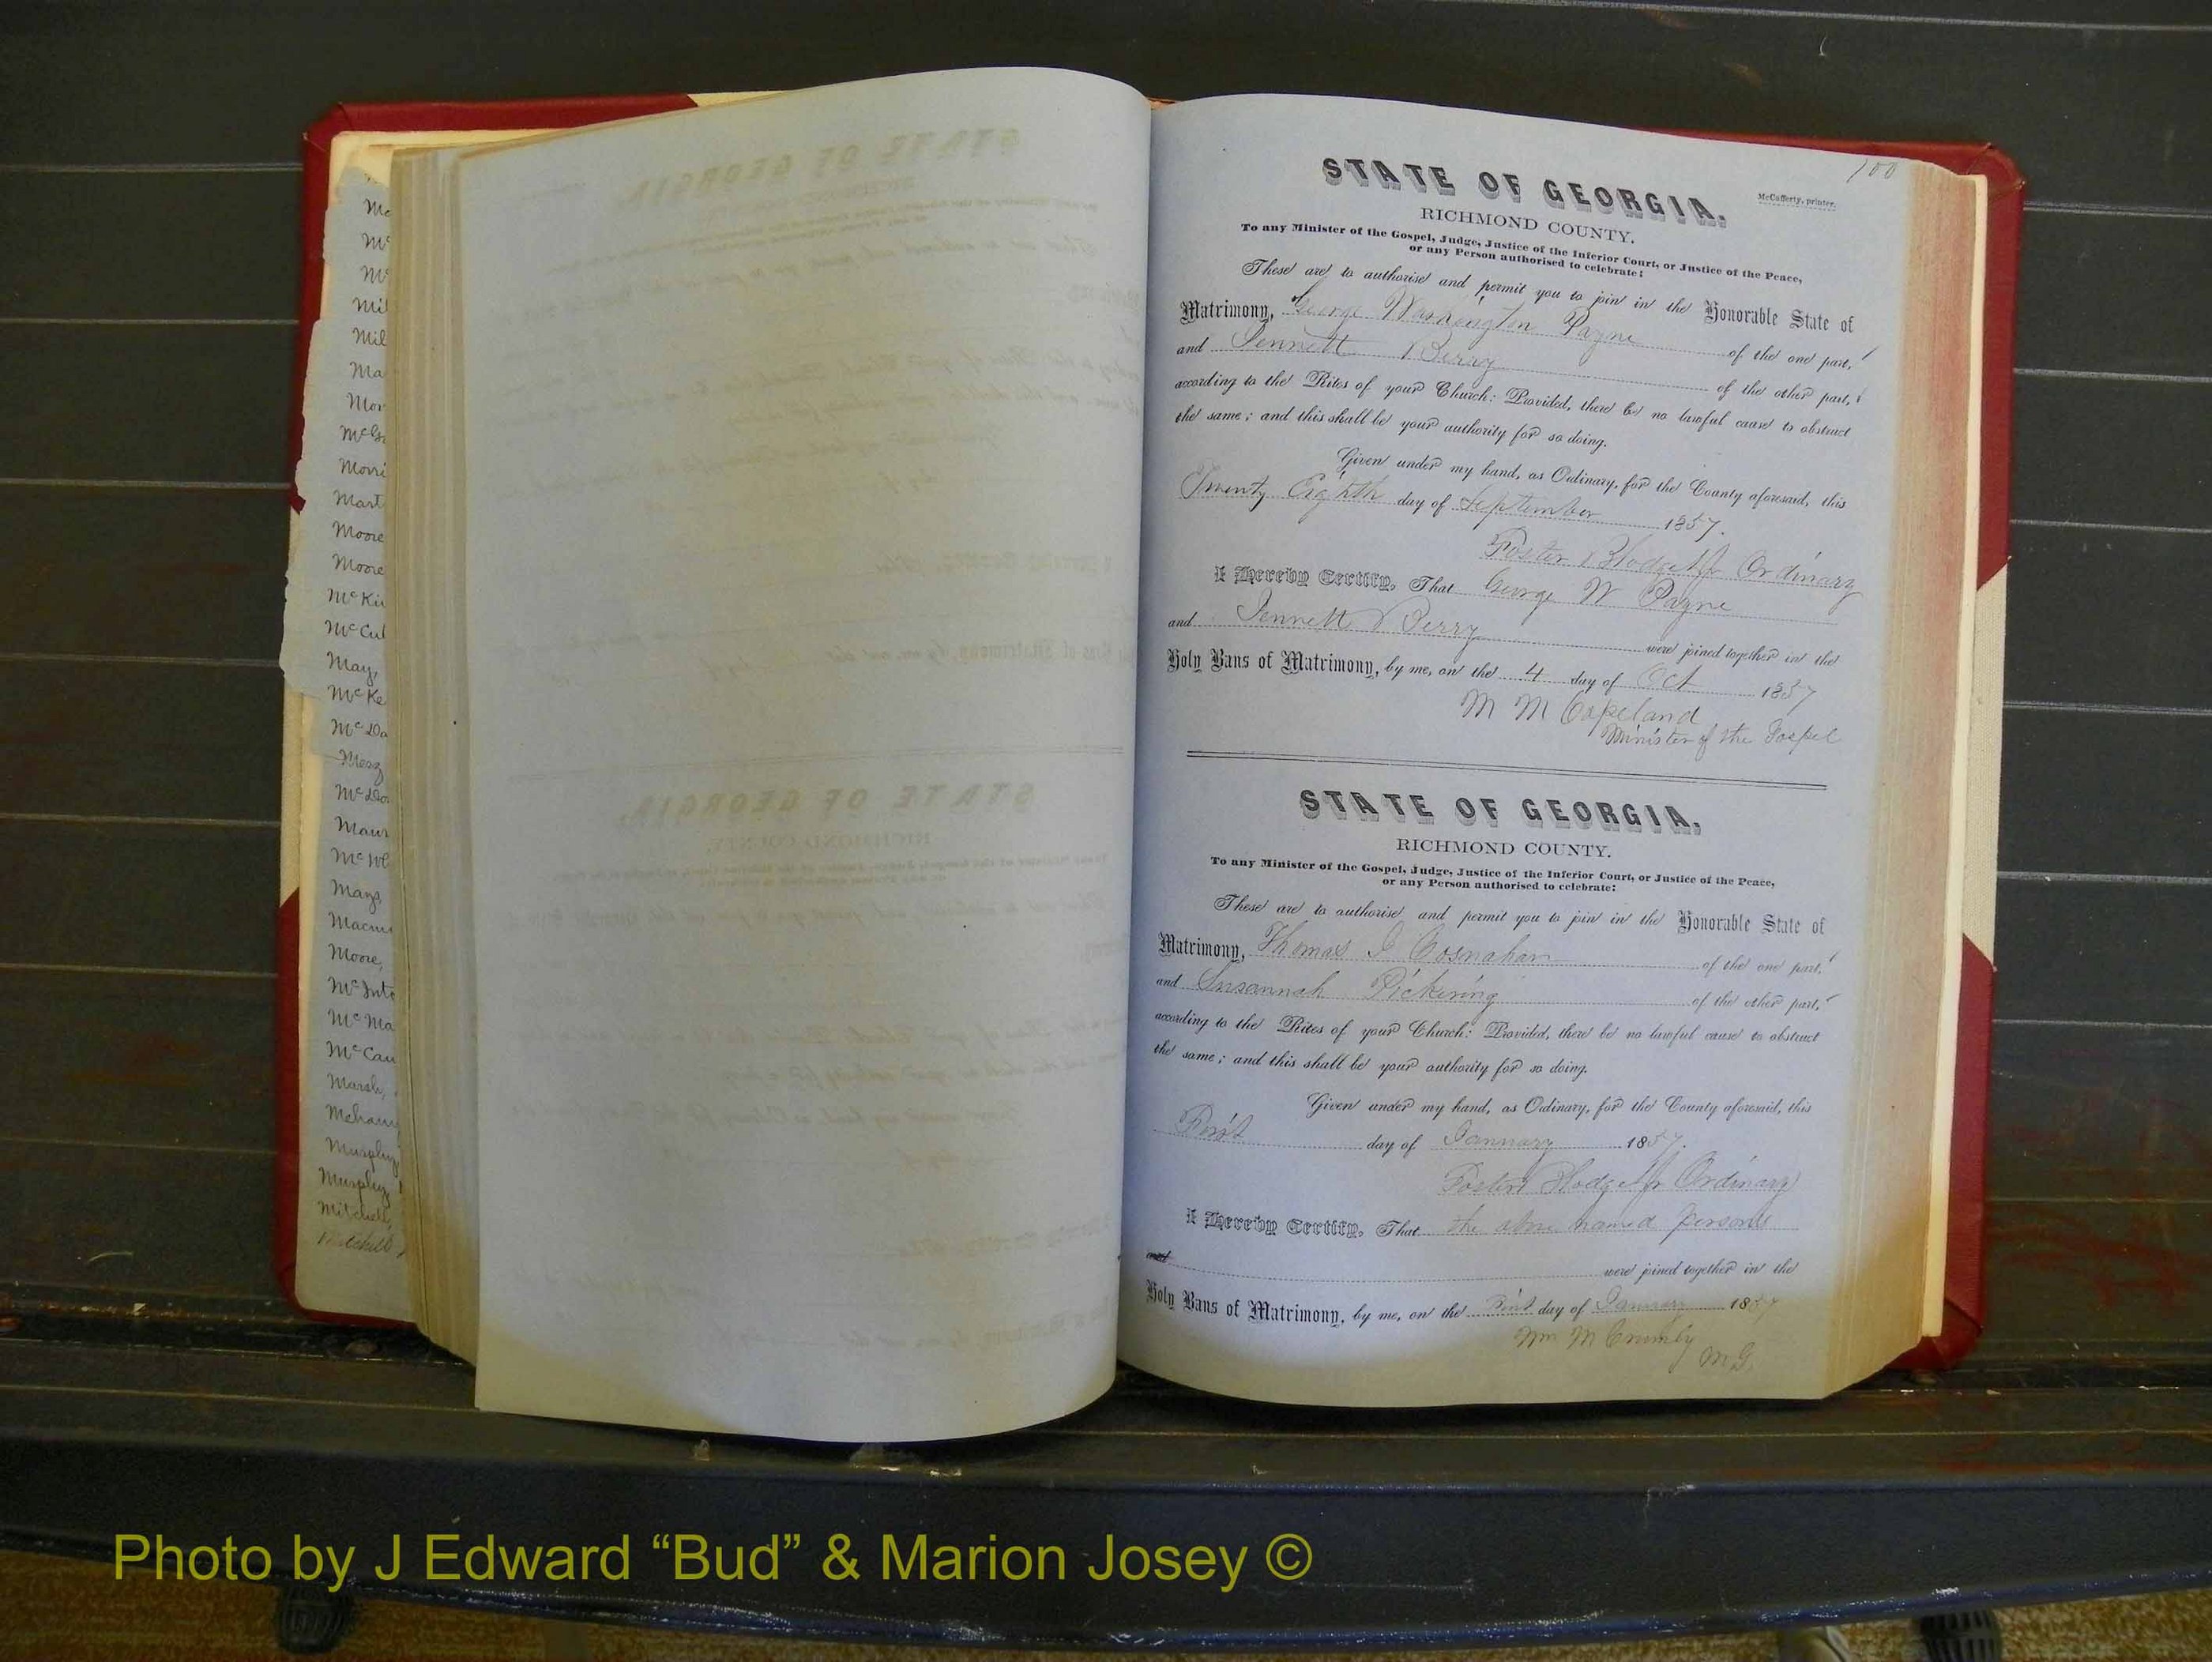 Mc
Mc
Mc
Mil
Mil
Ma
Mor
McGr
Morri
Mart
Moore
Moore
McKi
McCul
May,
McKe
McDa
McDo
Maur
Mays
Moore,
McInt
McMa
McCau
Marsh,
Murphy
Murphy
Mitchell,
Mitchell
100
STATE OF GEORGIA.
McCafferty, printer.
RICHMOND COUNTY.
To any Minister of the Gospel, Judge, Justice of the Inferior Court, or Justice of the Peace,
or any Person authorised to celebrate:
These are to authorise and permit you to join in the Honorable State of
Matrimony, George Washington Payne of the one part,
and Jennett Berry of the other part,
according to the Rites of your Church: Provided, there be no lawful cause to obstruct
the same; and this shall be your authority for so doing.
Given under my hand, as Ordinary, for the County aforesaid, this
Twenty Eighth day of September 1857.
Foster Blodget Jr Ordinary
I Hereby Certify, That George W Payne
and Jennett Berry were joined together in the
Holy Bans of Matrimony, by me, on the 4 day of Oct 1857
M M Copeland
Minister of the Gospel
STATE OF GEORGIA.
RICHMOND COUNTY.
To any Minister of the Gospel, Judge, Justice of the Inferior Court, or Justice of the Peace,
or any Person authorised to celebrate:
These are to authorise and permit you to join in the Honorable State of
Matrimony, Thomas J Cosnahan of the one part,
and Susannah Pickering of the other part,
according to the Rites of your Church: Provided, there be no lawful cause to obstruct
the same; and this shall be your authority for so doing.
Given under my hand, as Ordinary, for the County aforesaid, this
First day of January 1857.
Foster Blodget Jr Ordinary
I Hereby Certify, That the above named persons
and were joined together in the
Holy Bans of Matrimony, by me, on the First day of January 1857
Wm M Crumly
M.G.
Photo by J Edward “Bud” & Marion Josey ©